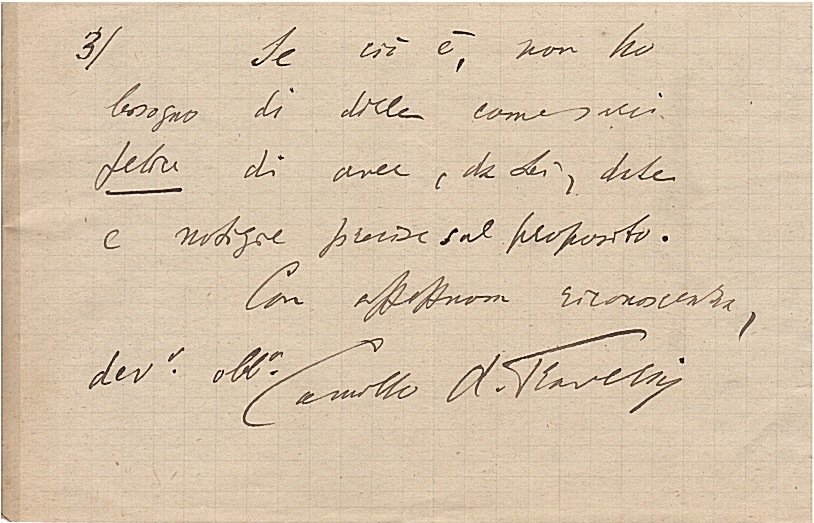 3/ Se ciò è, non ho
bisogno di dirle come sarei
felice di avere, da Lei, date
e notizie precise sul proposito.
Con riconoscenza,
dev. obbl. Camillo